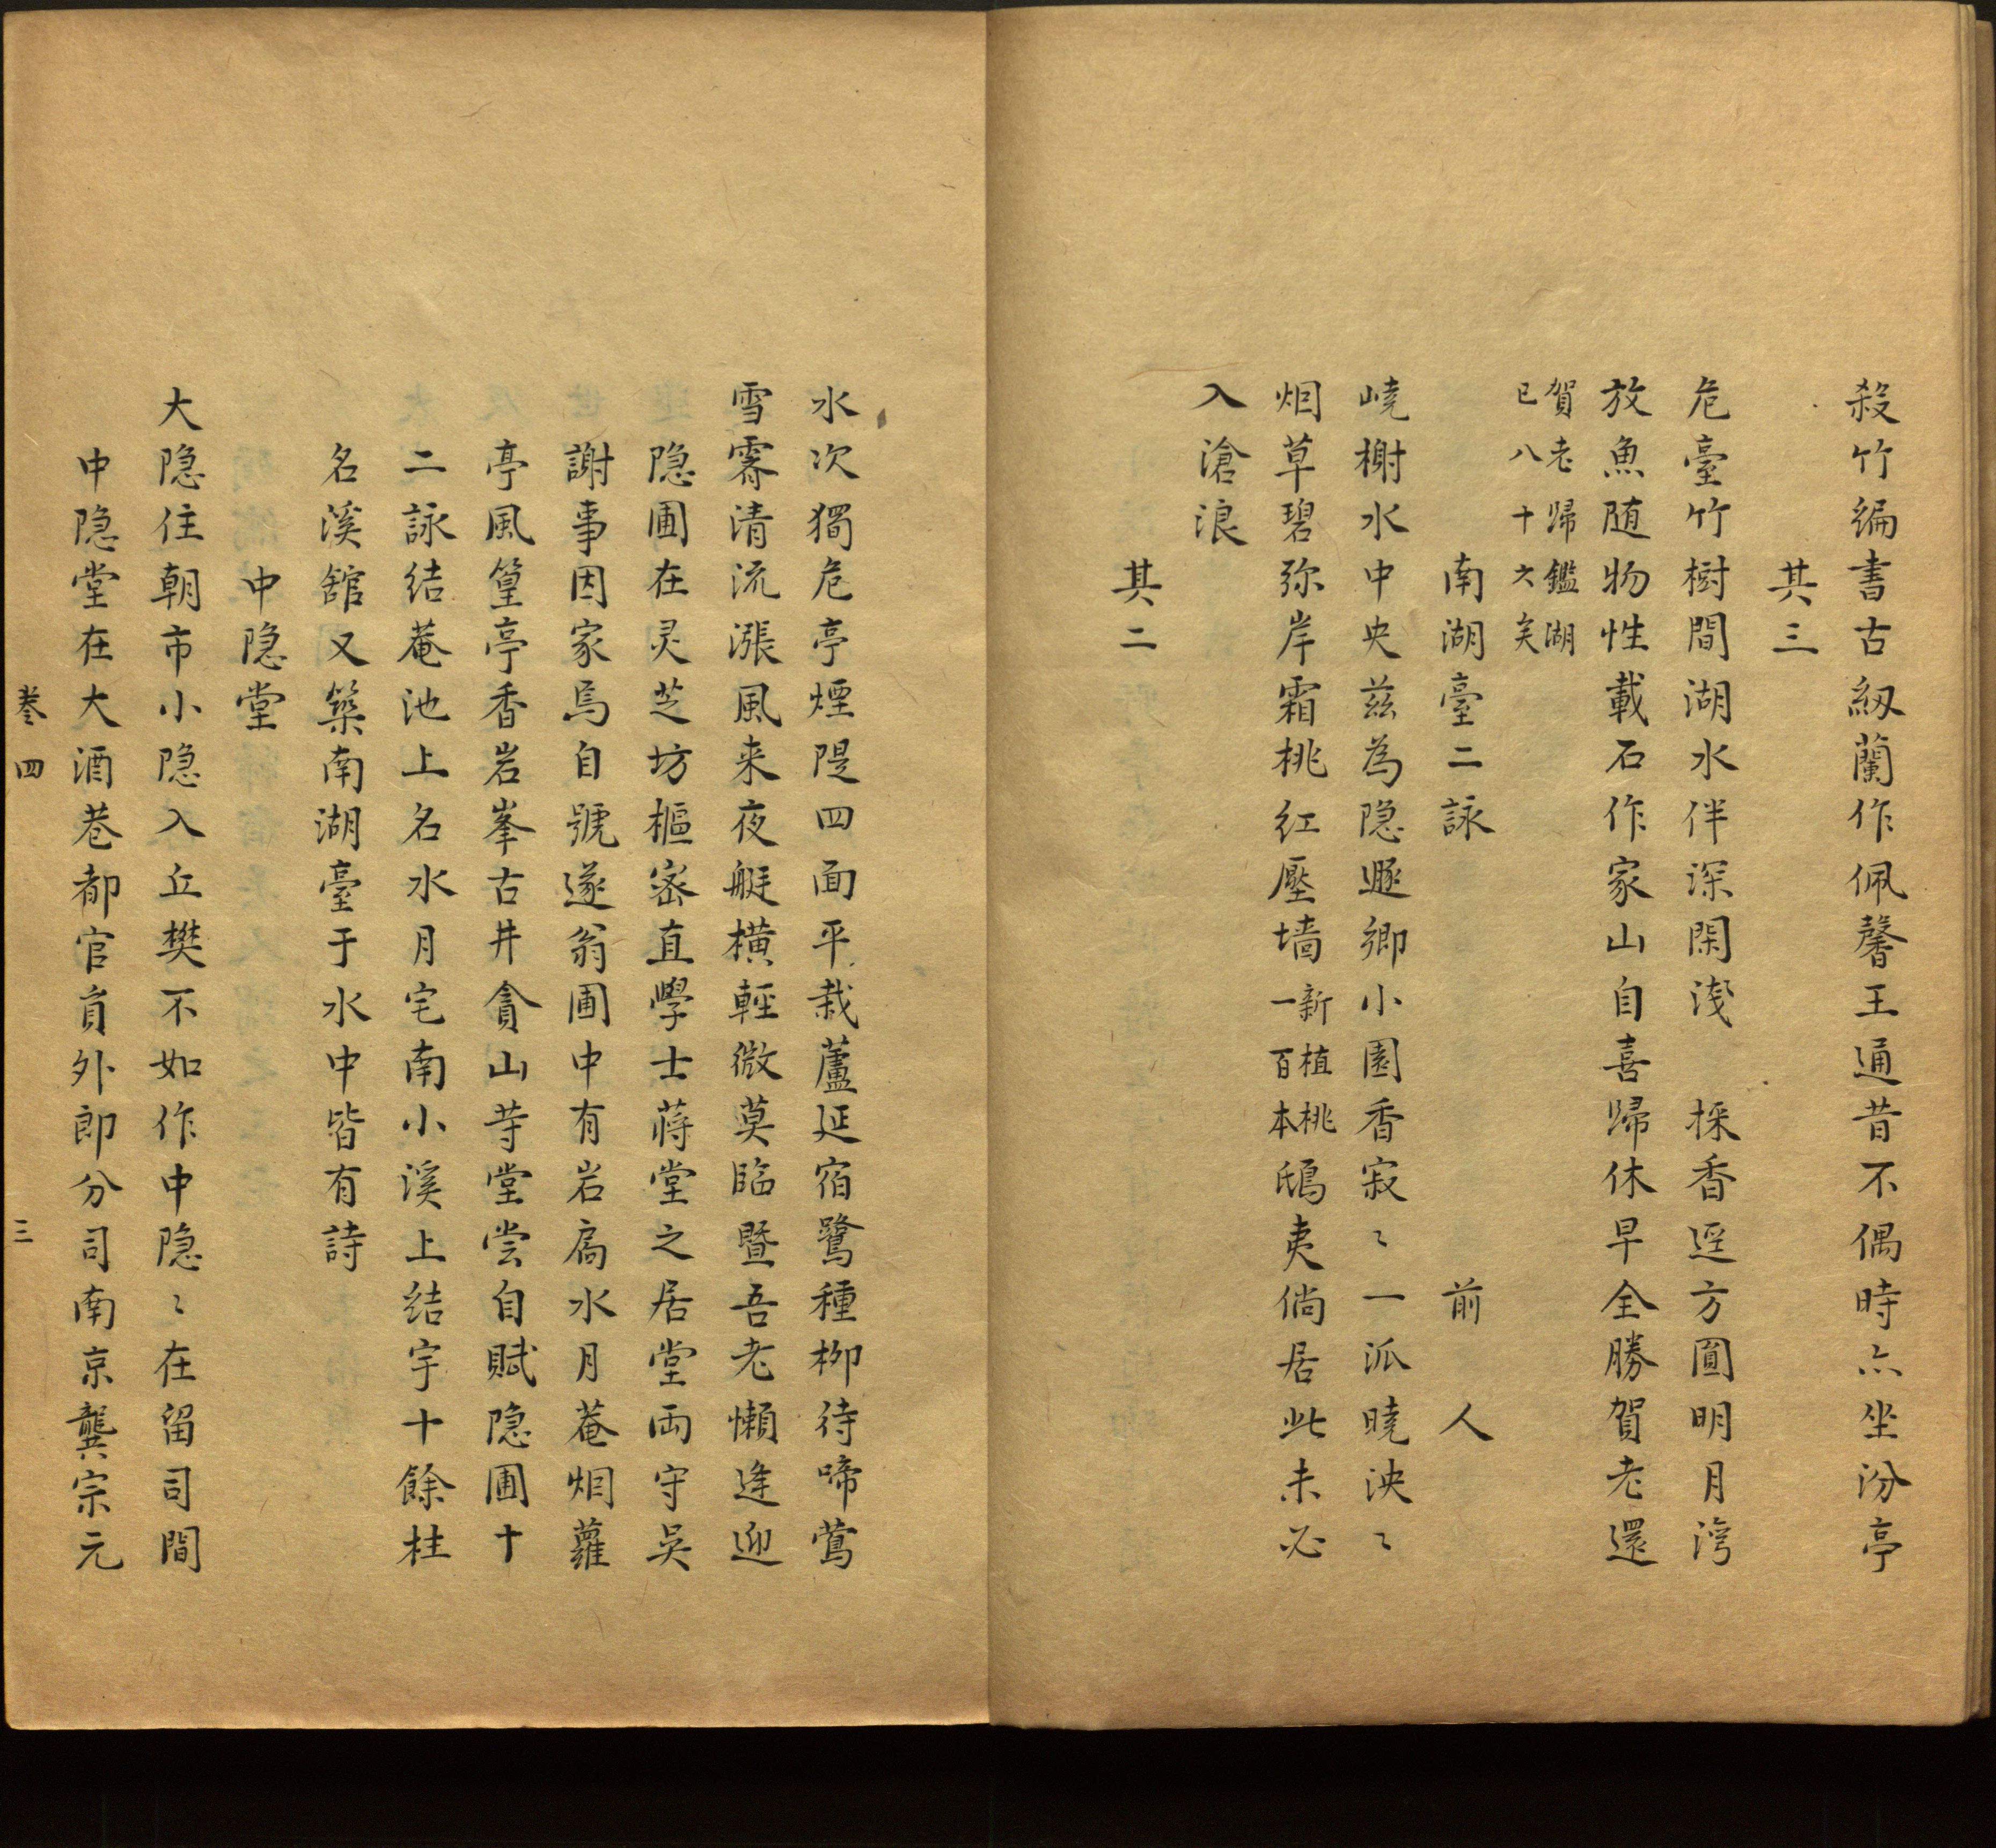 殺竹編書古紉蘭作佩馨王通昔不偶時亦坐汾亭
其三
危臺竹樹間湖水伴深閑淺　採香逕方圓明月灣
放魚随物性載石作家山自喜歸休早全勝賀老還
賀老歸鑑湖
已八十六矣
南湖臺二詠　前人
嶢榭水中央茲為隐遯鄉小園香寂〻一派曉泱〻
烟草碧弥岸霜桃紅壓墻新植桃一百本鴟夷倘居此未必
入滄浪
其二
水次獨危亭煙隄四面平栽蘆延宿鷺種柳待啼鶯
雪霽清流漲風来夜艇橫輕微莫臨曁吾老懶逢迎
隐圃在灵芝坊樞宻直學士蔣堂之居堂両守吳
謝事因家焉自號遂翁圃中有岩扃水月菴烟蘿
亭風篁亭香岩峯古井貪山䒭堂尝自賦隐圃十
二詠結菴池上名水月宅南小溪上结宇十餘柱
名溪舘又築南湖臺于水中皆有詩
中隐堂
大隐住朝市小隐入丘樊不如作中隐〻在留司間
中隐堂在大酒巷都官貟外郎分司南京龔宗元
卷四　三